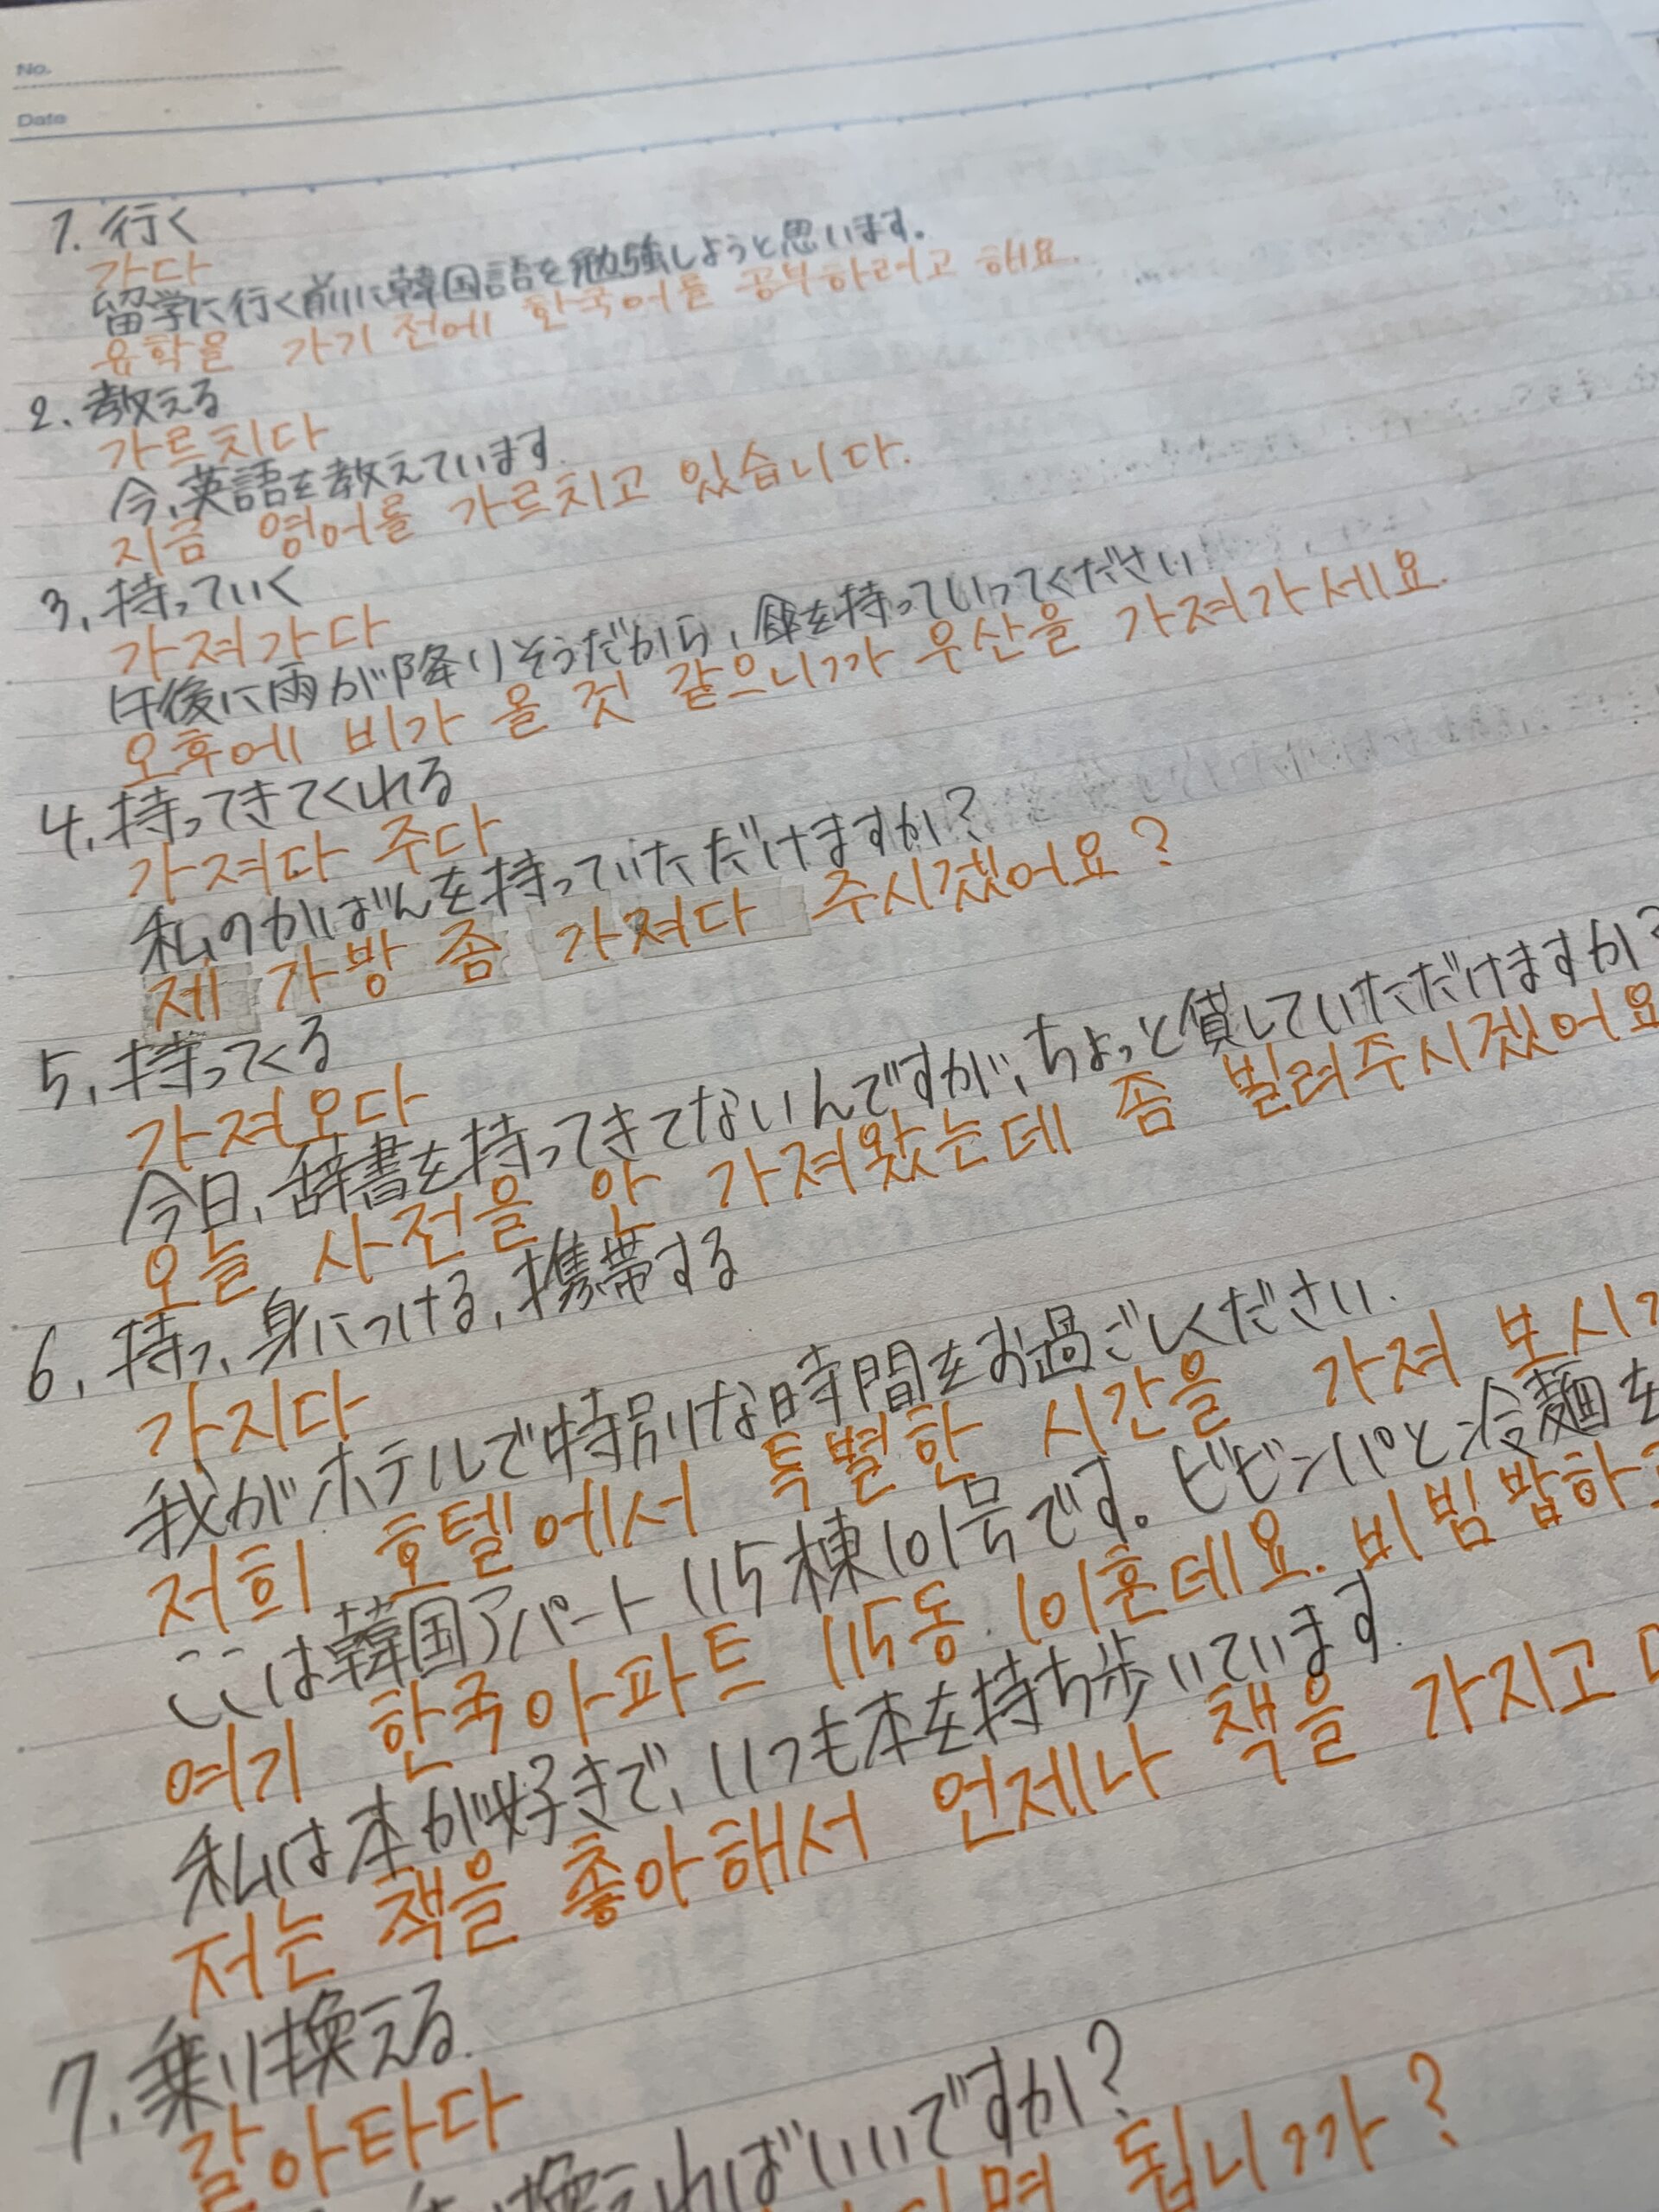 No.
Date
1. 行く
가다
留学に行く前に韓国語を勉強しようと思います。
유학을 가기 전에 한국어를 공부하려고 해요.
2. 教える
가르치다
今、英語を教えています.
지금 영어를 가르치고 있습니다.
3. 持っていく
가져가다
午後に雨が降りそうだから、傘を持っていってください
오후에 비가 올 것 같으니까 우산을 가져가세요.
4. 持ってきてくれる
가져다 주다
私のかばんを持っていただけますか?
제 가방 좀 가져다 주시겠어요?
5. 持ってくる
가져오다
今日、辞書を持ってきてないんですが、ちょっと貸していただけますか?
오늘 사전을 안 가져왔는데 좀 빌려주시겠어요
6. 持つ、身につける、携帯する
가지다
我がホテルで特別な時間をお過ごしください.
저희 호텔에서 특별한 시간을 가져 보시
ここは韓国アパート115棟101号です。ビビンパと冷麺を
여기 한국아파트 115동 101호인데요. 비빔밥하고
私は本が好きで、いつも本を持ち歩いています.
저는 책을 좋아해서 언제나 책을 가지고
7. 乗り換える.
갈아타다
換えればいいですか?
됩니까?